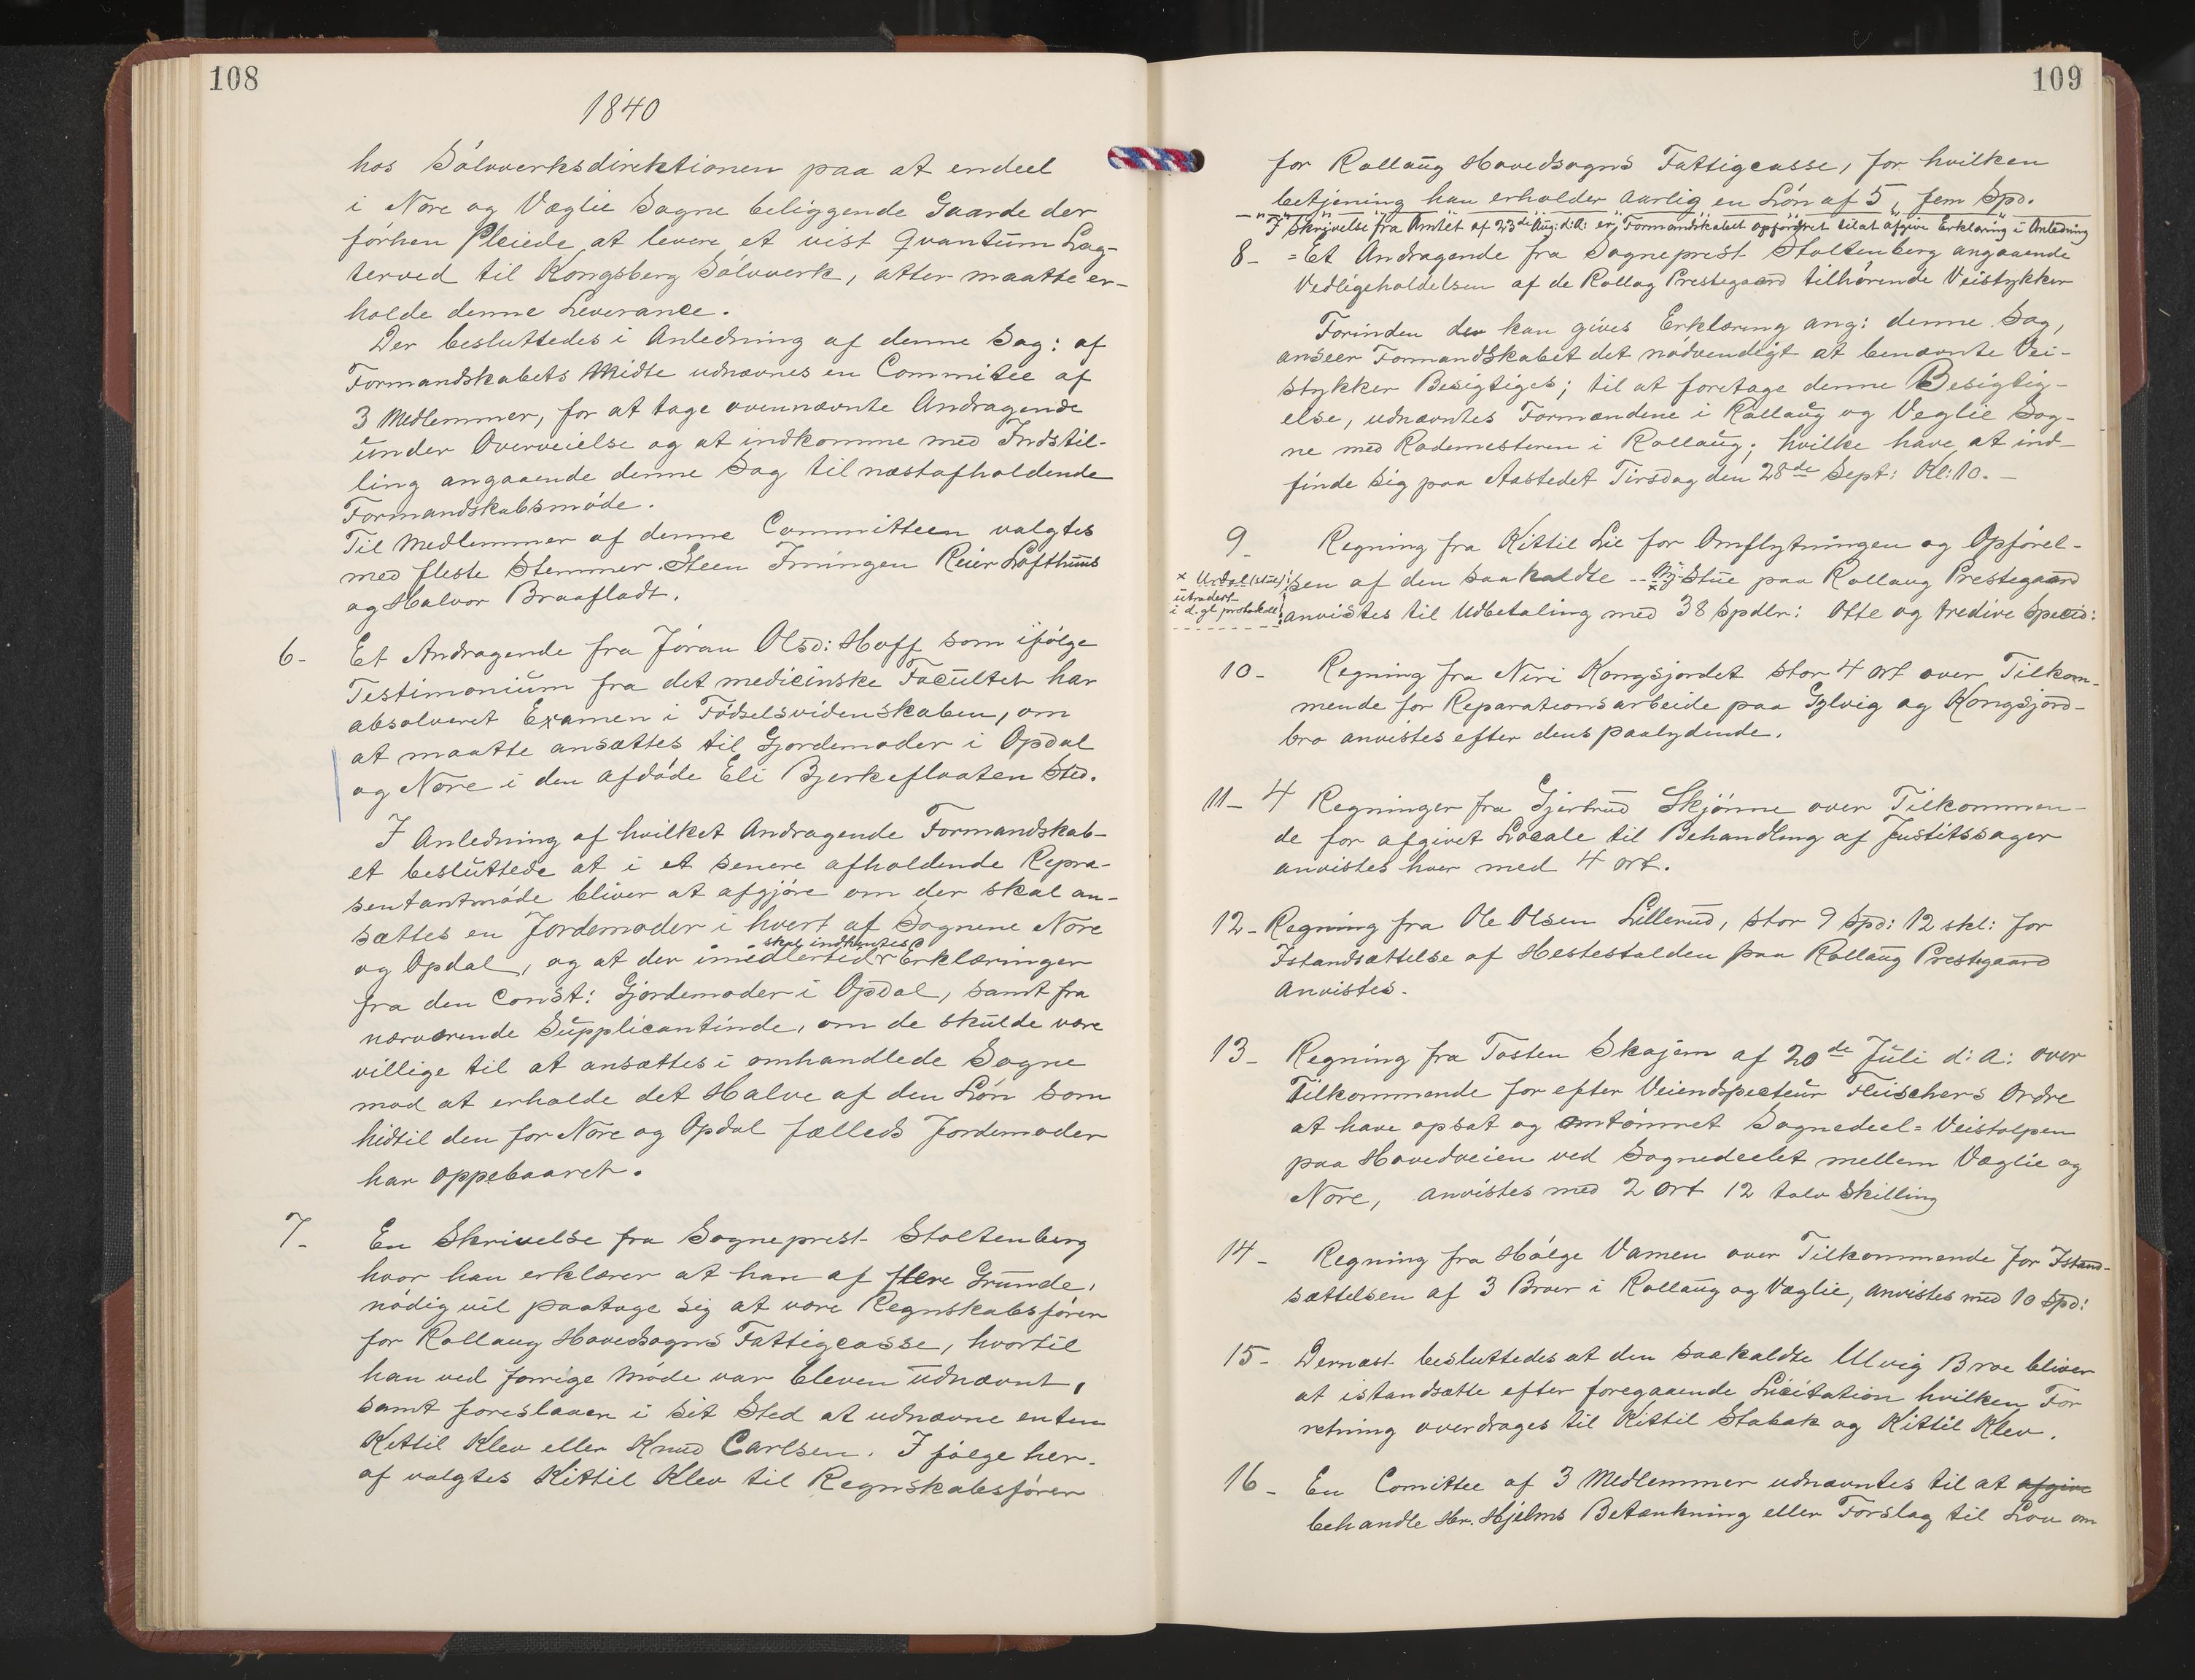 108
1840
hos Sölvverksdirektionen paa at endeel
i Nore og Væglie Sogne beliggende Gaarde der
förhen Pleiede at levere et vist Qvantum Lag-
terved til Kongsberg Sölvverk, atter maatte er-
holde denne Leverance.
Der besluttedes i Anledning af denne Sag: af
Formandskabets Midte udnævnes en Commitee af
3 Medlemmer, for at tage ovennævnte Andragende
under Overveielse og at indkomme med Indstil-
ling angaaende denne Sag til næstafholdende
Formandskabsmöde.
Til Medlemmer af denne Committeen valgtes
med fleste Stemmer. Steen Irningen Reier Lofthuus
og Halvor Braafladt.
6- Et Andragende fra Jöran Olsd: Hoff som ifölge
Testimonium fra det medicinske Facultet har
absolveret Examen i Födselsvidenskaben, om
at maatte ansættes til Gjordemoder i Opdal
og Nore i den afdöde Eli Bjerkeflaaten Sted.
I Anledning af hvilket Andragende Formandskab-
et besluttede at i et senere afholdende Repræ-
sentantmöde bliver at afgjöre om der skal an-
sættes en Jordemoder i hvert af Sognene Nore
skal indhentes
og Opdal, og at der imidlertid Erklæringer
fra den Const: Gjordemoder i Opdal, samt fra
nærværende Supplicantinde, om de skulde være
villige til at ansættes i omhandlede Sogne
mod at erholde det Halve af den Lön som
hidtil den for Nore og Opdal fælleds Jordemoder
har oppebaaret.
7- En Skrivelse fra Sogneprest Stoltenberg
hvor han erklærer at han af flere Grunde,
nödig vil paatage sig at være Regnskabsförer
for Rollaug Hovedsogns Fattigcasse, hvortil
han ved forrige Möde var bleven udnævnt,
samt foreslaaer i sit Sted at udnævne enten
Kittil Klev eller Knud Carlsen. I fölge her-
af valgtes Kittil Klev til Regnskabsförer
109
for Rollaug Hovedsogns Fattigcasse, for hvilken
betjening han erholder aarlig en Lön af 5, fem Spd.
I Skrivelse fra Amtet af 23de Aug: d: A: er Formandskabet opfordret til at afgive Erklæring i Anledning
8- =Et Andragende fra Sogneprest Stoltenberg angaaende
Vedligeholdelsen af de Rollag Prestegaard tilhörende Veistykker
Forinden der kan gives Erklæring ang: denne Sag,
anseer Formandskabet det nödvendigt at benævnte Vei-
stykker Besigtiges; til at foretage denne Besigtig-
else, udnævntes Formændene i Rollaug og Veglie Sog-
ne med Rodemesteren i Rollaug; hvilke have at ind-
finde sig paa Aastedet Tirsdag den 28de Sept: Kl: 10. -
9- Regning fra Kittil Lie for Omflytningen og Opförel-
sen af den saakaldte -- Ny-Stue paa Rollaug Prestegaard
x Urdal (stue)
utradert
i d. gl protokoll
anvistes til Udbetaling med 38 Spdlr: Otte og tredive Specid:
10- Regning fra Niri Kongsjordet stor 4 ort over Tilkom-
mende for Reparationsarbeide paa Gylvig og Kongsjord-
bro anvistes efter dens paalydende.
11- 4 Regninger fra Gjertrud Skjönne over Tilkommen-
de for afgivet Locale til Behandling af Justitssager
anvistes hver med 4 ort.
12- Regning fra Ole Olsen Lillerud, stor 9 Spd: 12 skl: for
Istandsættelse af Hestestalden paa Rollaug Prestegaard
Anvistes.
13- Regning fra Tosten Skajem af 20de Juli d: A: over
Tilkommende for efter Veiendspecteur Fleischers Ordre
at have opsat og omtömret Sognedeel= Veistolpen
paa Hovedveien ved Sognedeelet mellem Væglie og
Nore, anvistes med 2 Ort 12 tolv Skilling
14- Regning fra Hölge Vamen over Tilkommende for Istand-
sættelsen af 3 Broer i Rollaug og Væglie, anvistes med 10 Spd:
15- Dernæst besluttedes at den saakaldte Ulvig Broe bliver
at istandsætte efter foregaaende Licitation hvilken For
retning overdrages til Kittil Stabæk og Kittil Klev.
16- En Comittee af 3 Medlemmer udnævntes til at afgive
behandle Hr. Hjelms Betænkning eller Forslag til Lov om